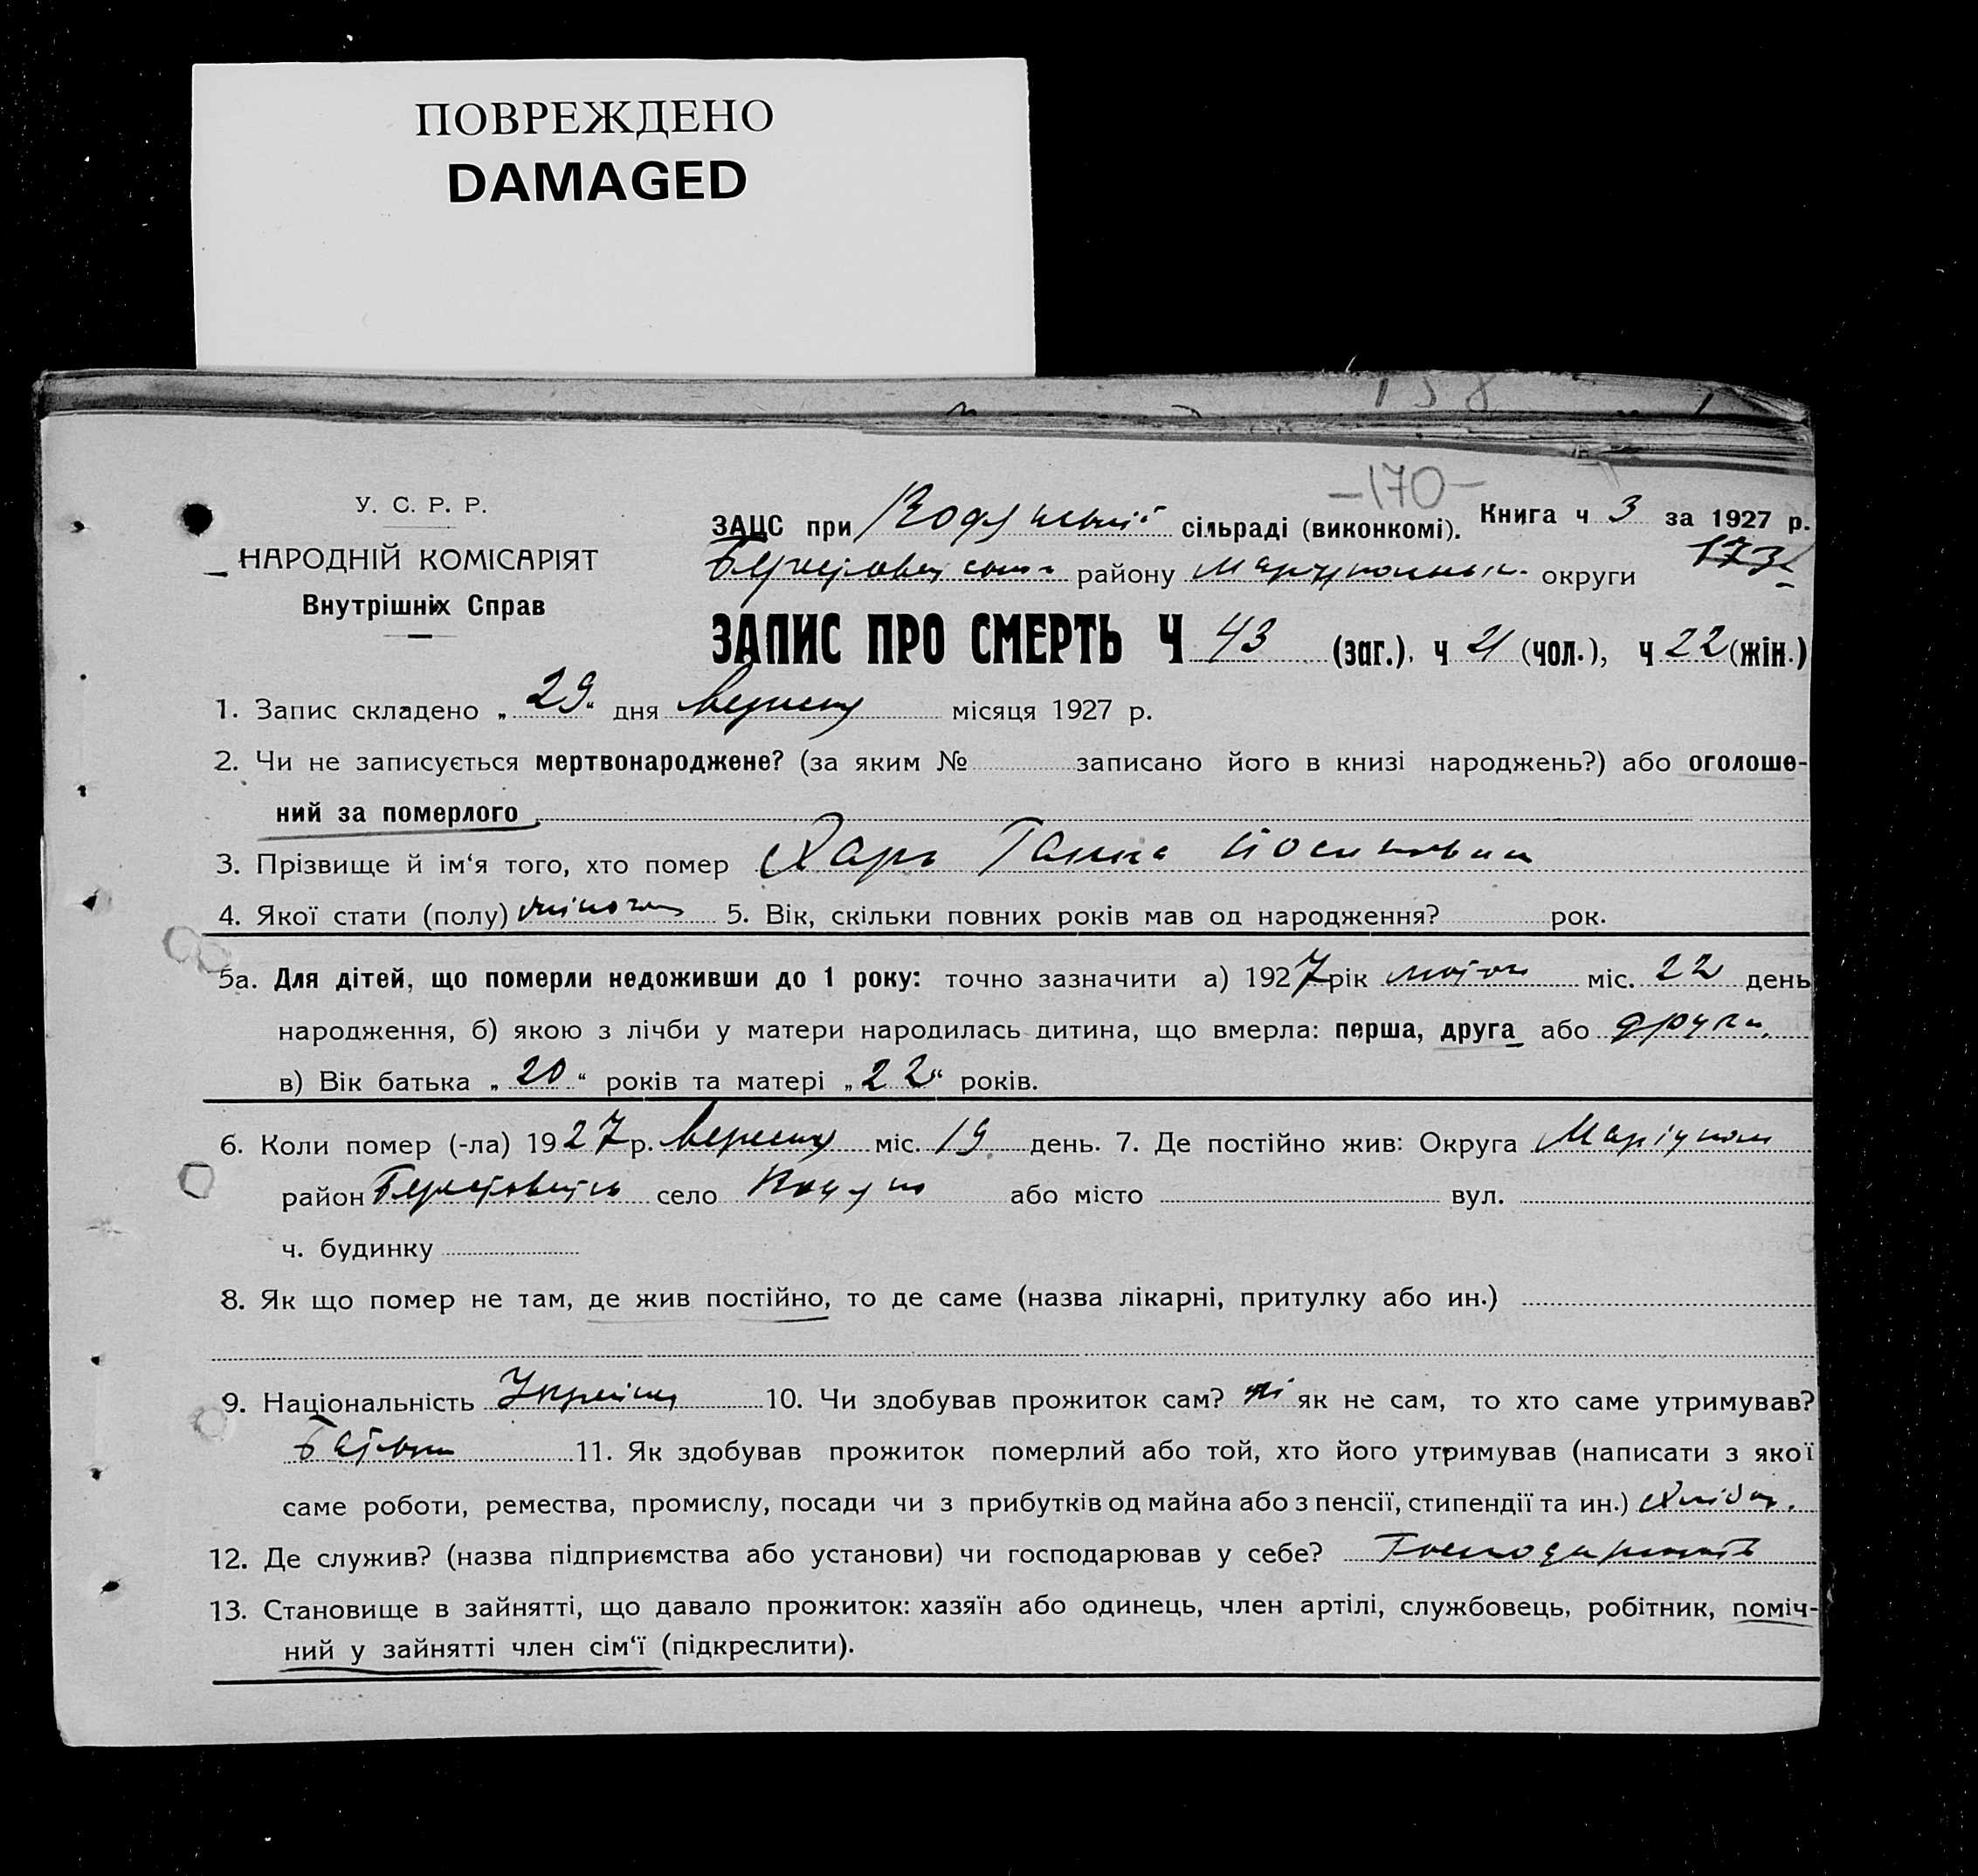 ПОВРЕЖДЕНО
DAMAGED
158
-170-
У. С. Р. Р.
НАРОДНІЙ КОМІСАРІЯТ
Внутрішніх Справ
ЗАЦС при сільраді (виконкомі). Книга ч 3 за 1927 р.
району округи 173
ЗАПИС ПРО СМЕРТЬ Ч 43 (заг.), ч 21 (чол.), ч 22 (жін.)
1. Запис складено „29“ дня Вересня місяця 1927 р.
2. Чи не записується мертвонароджене? (за яким № записано його в книзі народжень?) або оголоше-
ний за померлого
3. Прізвище й ім‘я того, хто помер Харь Ганна
4. Якої стати (полу) жіноча 5. Вік, скільки повних років мав од народження? рок.
5а. Для дітей, що померли недоживши до 1 року: точно зазначити а) 1927 рік лютого міс. 22 день
народження, б) якою з лічби у матери народилась дитина, що вмерла: перша, друга або друга
в) Вік батька „20“ років та матері „22“ років.
6. Коли помер (-ла) 1927 р. Вересня міс. 19 день. 7. Де постійно жив: Округа Маріупол
район село або місто вул.
ч. будинку
8. Як що помер не там, де жив постійно, то де саме (назва лікарні, притулку або ин.)
9. Національність 10. Чи здобував прожиток сам? ні як не сам, то хто саме утримував?
Батьки 11. Як здобував прожиток померлий або той, хто його утримував (написати з якої
саме роботи, ремества, промислу, посади чи з прибутків од майна або з пенсії, стипендії та ин.)
12. Де служив? (назва підприємства або установи) чи господарював у себе?
13. Становище в зайнятті, що давало прожиток: хазяїн або одинець, член артілі, службовець, робітник, поміч-
ний у зайнятті член сім‘ї (підкреслити).